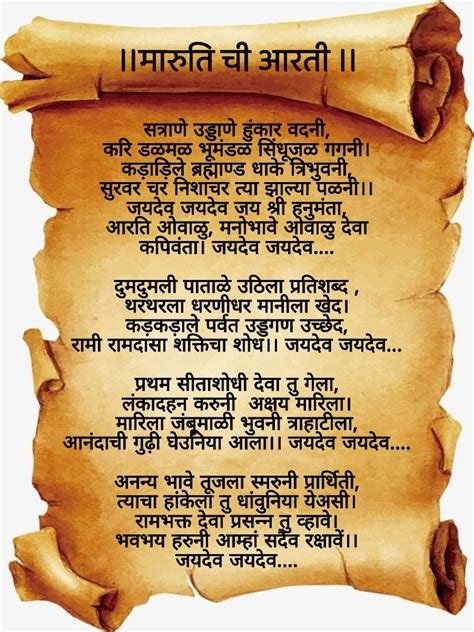 ।।मारुति ची आरती ।।
सत्राणे उड्डाणे हुंकार वदनी,
करि डळमळ भूमंडळ सिंधूजळ गगनी।
कड़ाड़िले ब्रह्माण्ड धाके त्रिभुवनी,
सुरवर चर निशाचर त्या झाल्या पळनी।।
जयदेव जयदेव जय श्री हनुमंता,
आरति ओवाळु, मनोभावे ओवाळु देवा
कपिवंता। जयदेव जयदेव....
दुमदुमली पाताळे उठिला प्रतिशब्द ,
थरथरला धरणीधर मानीला खेद।
कड़कड़ाले पर्वत उड्डगण उच्छेद,
रामी रामदांसा शक्तिचा शोध।। जयदेव जयदेव...
प्रथम सीताशोधी देवा तु गेला,
लंकादहन करुनी अक्षय मारिला।
मारिला जंबूमाळी भुवनी त्राहाटीला,
आनंदाची गुढ़ी घेउनिया आला।। जयदेव जयदेव....
अनन्य भावे तूजला स्मरुनी प्रार्थिती,
त्याचा हांकेला तु धांवुनिया येअसी।
रामभक्त देवा प्रसन्न तु व्हावे।
भवभय हरुनी आम्हां सदैव रक्षावें।।
जयदेव जयदेव....